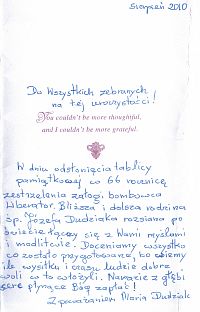 Sierpień 2010
Do Wszystkich zebranych
na tej uroczystości!
You couldn't be more thoughtful,
and I couldn't be more grateful.
W dniu odsłonięcia tablicy
pamiątkowej w 66 rocznicę
zestrzelenia załogi bombowca
Liberator. Bliższa i dalsza rodzina
śp. Józefa Dudziaka rozsiana po
świecie łączy się z Wami myślami
i modlitwie. Doceniamy wszystko
co zostało przygotowane, bo wiemy
ile wysiłku i czasu ludzie dobrej
woli co to włożyli. Narazie z głębi
serc płynące Bóg zapłać!
Z poważaniem Maria Dudziak